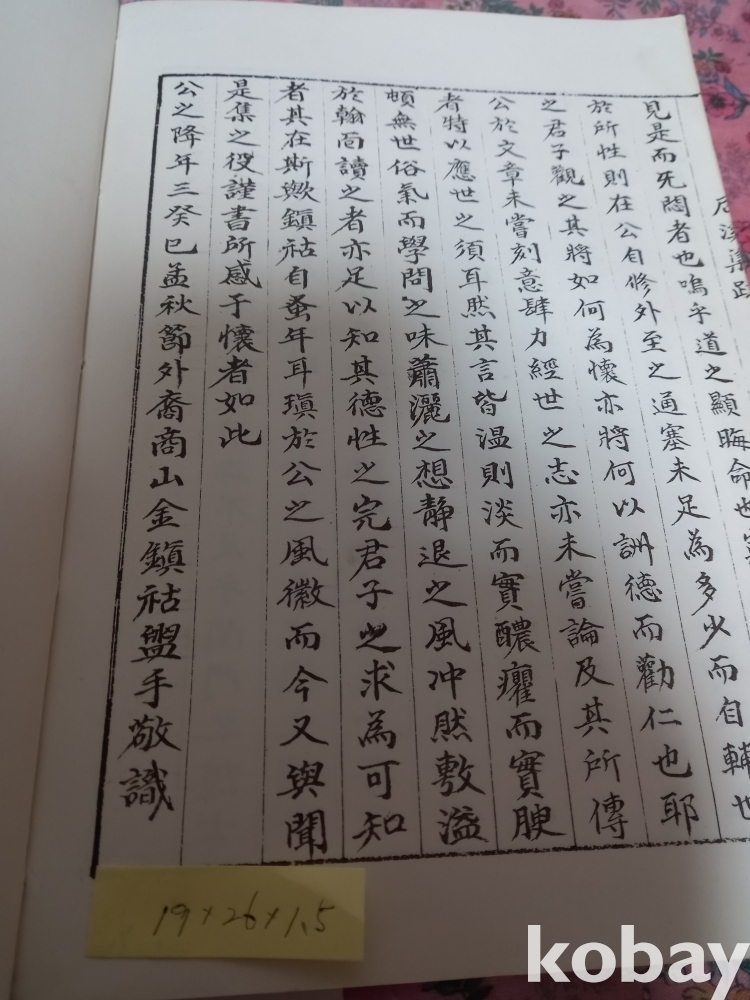 后溪集跋
見是而死悶者也嗚乎道之顯晦命也
於所性則在公自修外至之通塞未足為多少而自輔世
之君子觀之其將如何為懷亦將何以訓德而勸仁也耶
公於文章未嘗刻意肆力經世之志亦未嘗論及其所傳
者特以應世之須耳然其言皆温則淡而實醲癯而實腴
頓無世俗氣而學問之味蕭灑之想靜退之風冲然敷溢
於翰面讀之者亦足以知其德性之完君子之求為可知
者其在斯歟鎭祜自蚤年耳瑱於公之風徽而今又與聞
是集之役謹書所感于懷者如此
公之降年三癸巳孟秋節外裔商山金鎭祜盥手敬識
19×26×1.5
kobay